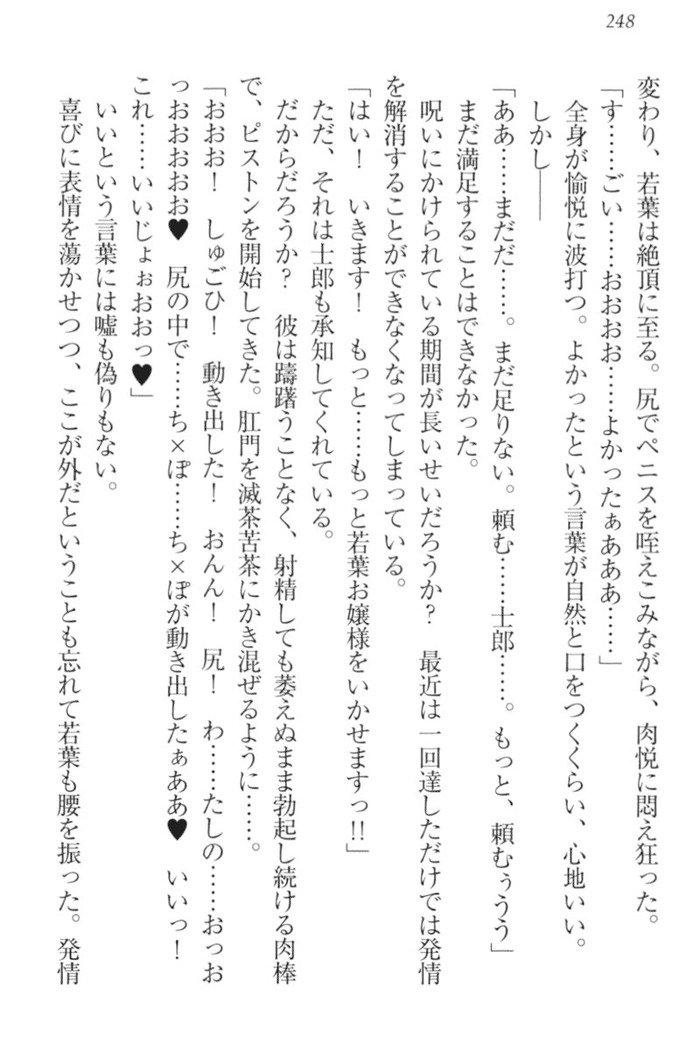 248
変わり、若葉は絶頂に至る。尻でペニスを咥えこみながら、肉悦に悶え狂った。
「す……ごい……おおおお……よかったぁあああ……」
全身が愉悦に波打つ。よかったという言葉が自然と口をつくくらい、心地いい。
しかし――
「ああ……まだだ……。まだ足りない。頼む……士郎……。もっと、頼むぅうう」
まだ満足することはできなかった。
呪いにかけられている期間が長いせいだろうか？　最近は一回達しただけでは発情
を解消することができなくなってしまっている。
「はい！　いきます！　もっと……もっと若葉お嬢様をいかせますっ!!」
ただ、それは士郎も承知してくれている。
だからだろうか？　彼は躊躇うことなく、射精しても萎えぬまま勃起し続ける肉棒
で、ピストンを開始してきた。肛門を滅茶苦茶にかき混ぜるように……。
「おおお！　しゅごひ！　動き出した！　おんん！　尻！　わ……たしの……おっお
っおおおおお♥　尻の中で……ち×ぽ……ち×ぽが動き出したぁああ♥　いいっ！
これ……いいじょぉおおっ♥」
いいという言葉には嘘も偽りもない。
喜びに表情を蕩かせつつ、ここが外だということも忘れて若葉も腰を振った。発情